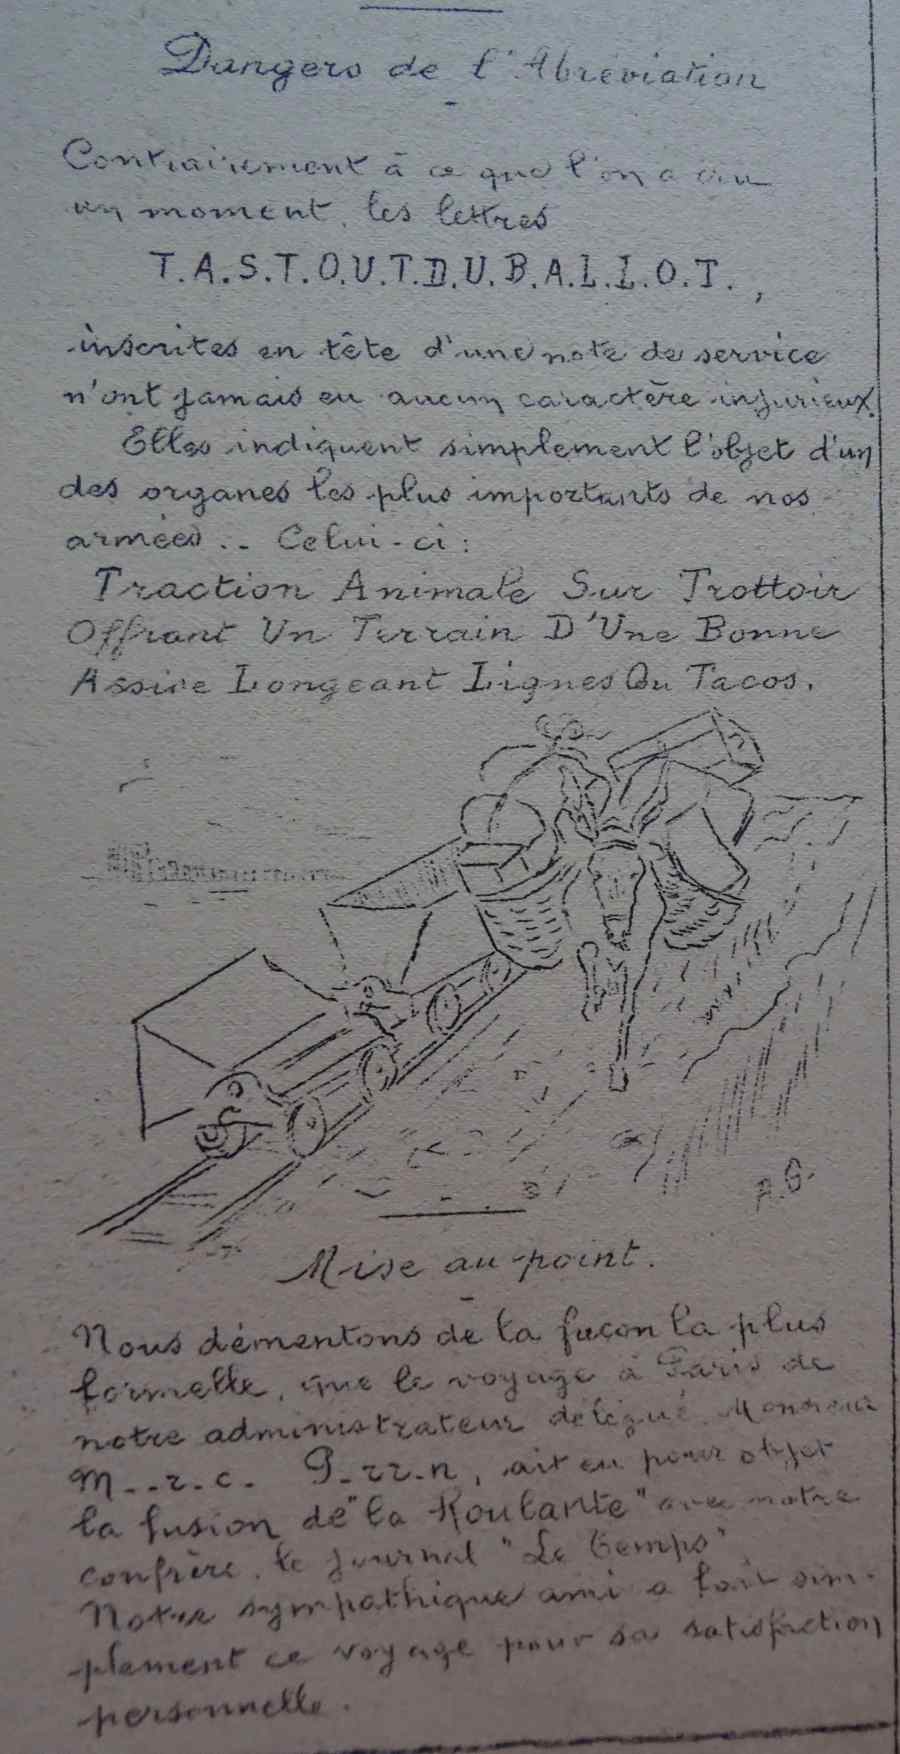 Dangers de l'Abreviation
Contrairement à ce que l'on a cru
un moment, les lettres
T.A.S.T.O.U.T.D.U.B.A.L.L.O.T.,
inscrites en tête d'une note de service
n'ont jamais eu aucun caractère injurieux.
Elles indiquent simplement l'objet d'un
des organes les plus importants de nos
armées... Celui-ci:
Traction Animale Sur Trottoir
Offrant Un Terrain D'Une Bonne
Assise Longeant Lignes Ou Tacos.
A.G.
Mise au point.
Nous démentons de la façon la plus
formelle, que le voyage à Paris de
notre administrateur délégué, Monsieur
M..r.c. P.rr.n, ait eu pour objet
la fusion de "la Roulante" avec notre
confrère, le journal "Le Temps"
Notre sympathique ami a fait sim-
plement ce voyage pour sa satisfaction
personnelle.